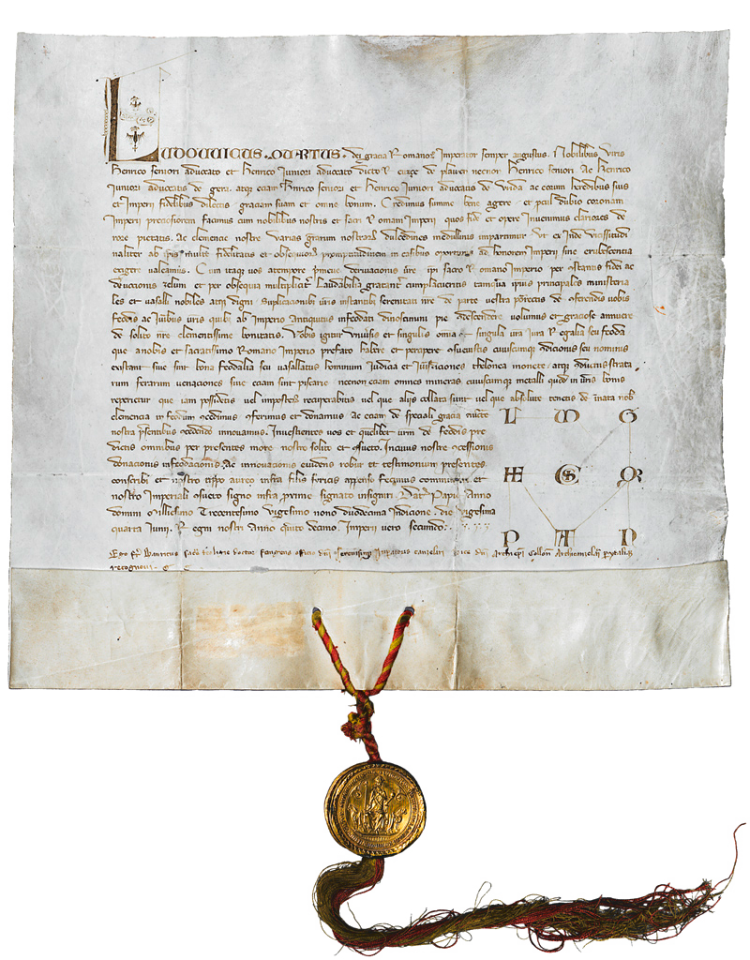 LUDOVVICUS . QVARTUS . dei gracia Romanor Imperator semper augustus . Nobilibus viris
Henrico seniori advocato et Henrico Juniori advocato dicto Ruze de plawen necnon Henrico seniori . Ac Henrico
Juniori advocatis de gera . atque eciam Henrico seniori et Henrico Juniori advocatis de Wida ac eorum heredibus suis
et Imperii fidelibus dilectis graciam suam et omne bonum . Credimus summe bene agere et procul dubio coronam
Imperii preaclsiorem facimus cum nobilibus nostris et sacri Romani Imperii quos fide et opere Invenimus clariores de
rore pietatis . Ac clemencie nostre varias graciarum nostrarum dulcedines medullinus impartimur Ut ex Inde vicissitudi
naliter ab ipsis multe fidelitatis et obsequiorum promptitudinem in casibus oportunis ad honorem Imperii sine erubescentia
exigere valeamus . Cum itaque vos a tempore primeve derivacionis vestre ipsi sacro Romano Imperio per constantis fidei ac
devocionis zelum et per obsequia multipliciter Laudabilia gratanter complacueritis tamquam ipsius principales ministeria
les et vasalli nobiles atque digni Supplicacionibus vestris instantibus serenitati nostre de parte vestra porrectis de conferendis vobis
feodis ac Juribus vestris quibus ab Imperio Antiquitus infeodati dinoscimini pie condescendere volumus et graciose annuere
de solite nostre clementissime bonitatis . Vobis igitur universis et singulis omnia et singula vestra Jura Regalia seu feoda
que a nobis et sacratissimo Romano Imperio prefato habere et percipere consuevistis cuiuscumque condicionis seu nominis
existant sive sint bona feodalia seu vasallatus hominum Judicia et Jurisdiciones thelonea monete atque conductus strata
rum ferarum venaciones sive eciam sint piscarie necnon eciam omnes mineras cuiuscumque metalli quod in vestris bonis
reperietur que iam possidetis vel inposterum recuperabitis vel que aliis collata sunt vel que absolute tenetis de innata nobis
clemencia in feodum concedimus conferimus et donamus ac eciam de speciali gracia nunc
nostra presentibus concedendo innovamus . Investientes vos et quemlibet vestrum de feodis pre
dictis omnibus per presentes more nostro solito et consueto . In cuius nostre concessionis
donacionis infeodacionis ac innovacionis evidens robur et testimonium presentes
conscribi et nostro typo aureo infra filis sericis appenso fecimus communiri et
nostro Imperiali consueto signo infra proxime signato insigniri Dat Papie Anno
domini Millesimo Trecentesimo Vigesimo nono duodecima Indicione die Vigesima
quarta Junii . Regni nostri Anno quinto decimo Imperii vero secundo .
L W G
HE R
P A D
Archiepi Collon Archicancellarii per ytaliam
recognovi .